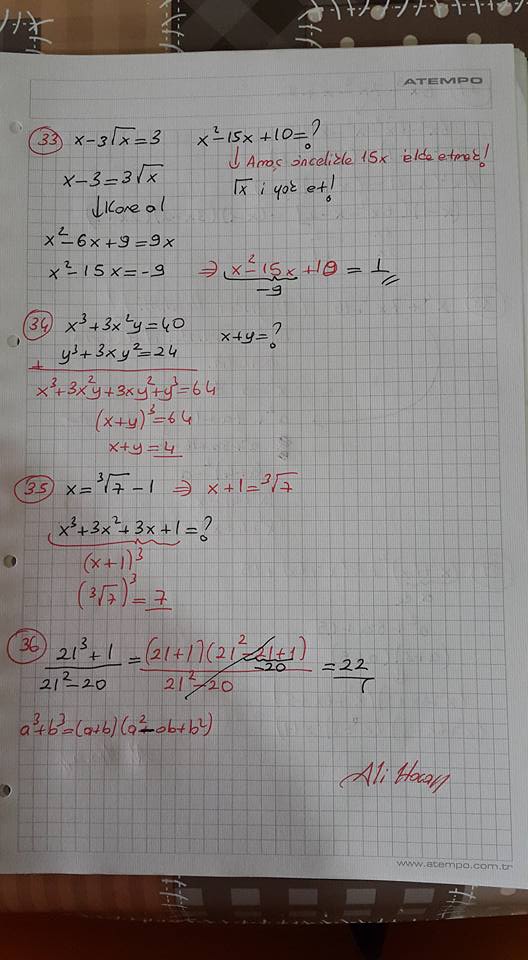 ATEMPO
33 x-3√x=3 x²-15x+10=?
↓ Amaç öncelikle 15x elde etmek!
x-3=3√x √x i yok et!
↓Kare al
x²-6x+9=9x
x²-15x=-9 ⇒ x²-15x+10=1
-9
34 x³+3x²y=40 x+y=?
+ y³+3xy²=24
x³+3x²y+3xy²+y³=64
(x+y)³=64
x+y=4
35 x=³√7-1 ⇒ x+1=³√7
x³+3x²+3x+1=?
(x+1)³
(³√7)³=7
36 21³+1 = (21+1)(21²-21+1) = 22
-20
21²-20 21²-20
a³+b³=(a+b)(a²-ab+b²)
Ali Hocan
www.atempo.com.tr